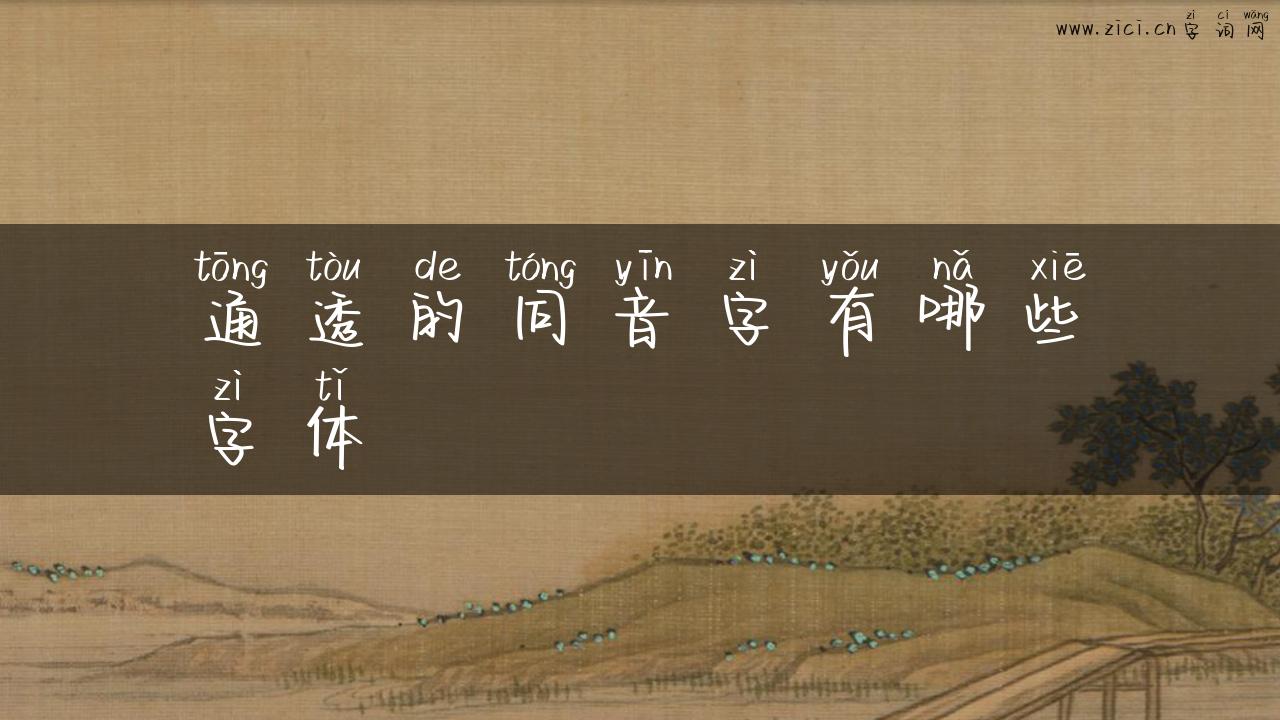 zì cí wǎng
www.zici.cn字词网
tōng tòu de tóng yīn zì yǒu nǎ xiē
通透的同音字有哪些
zì tǐ
字体